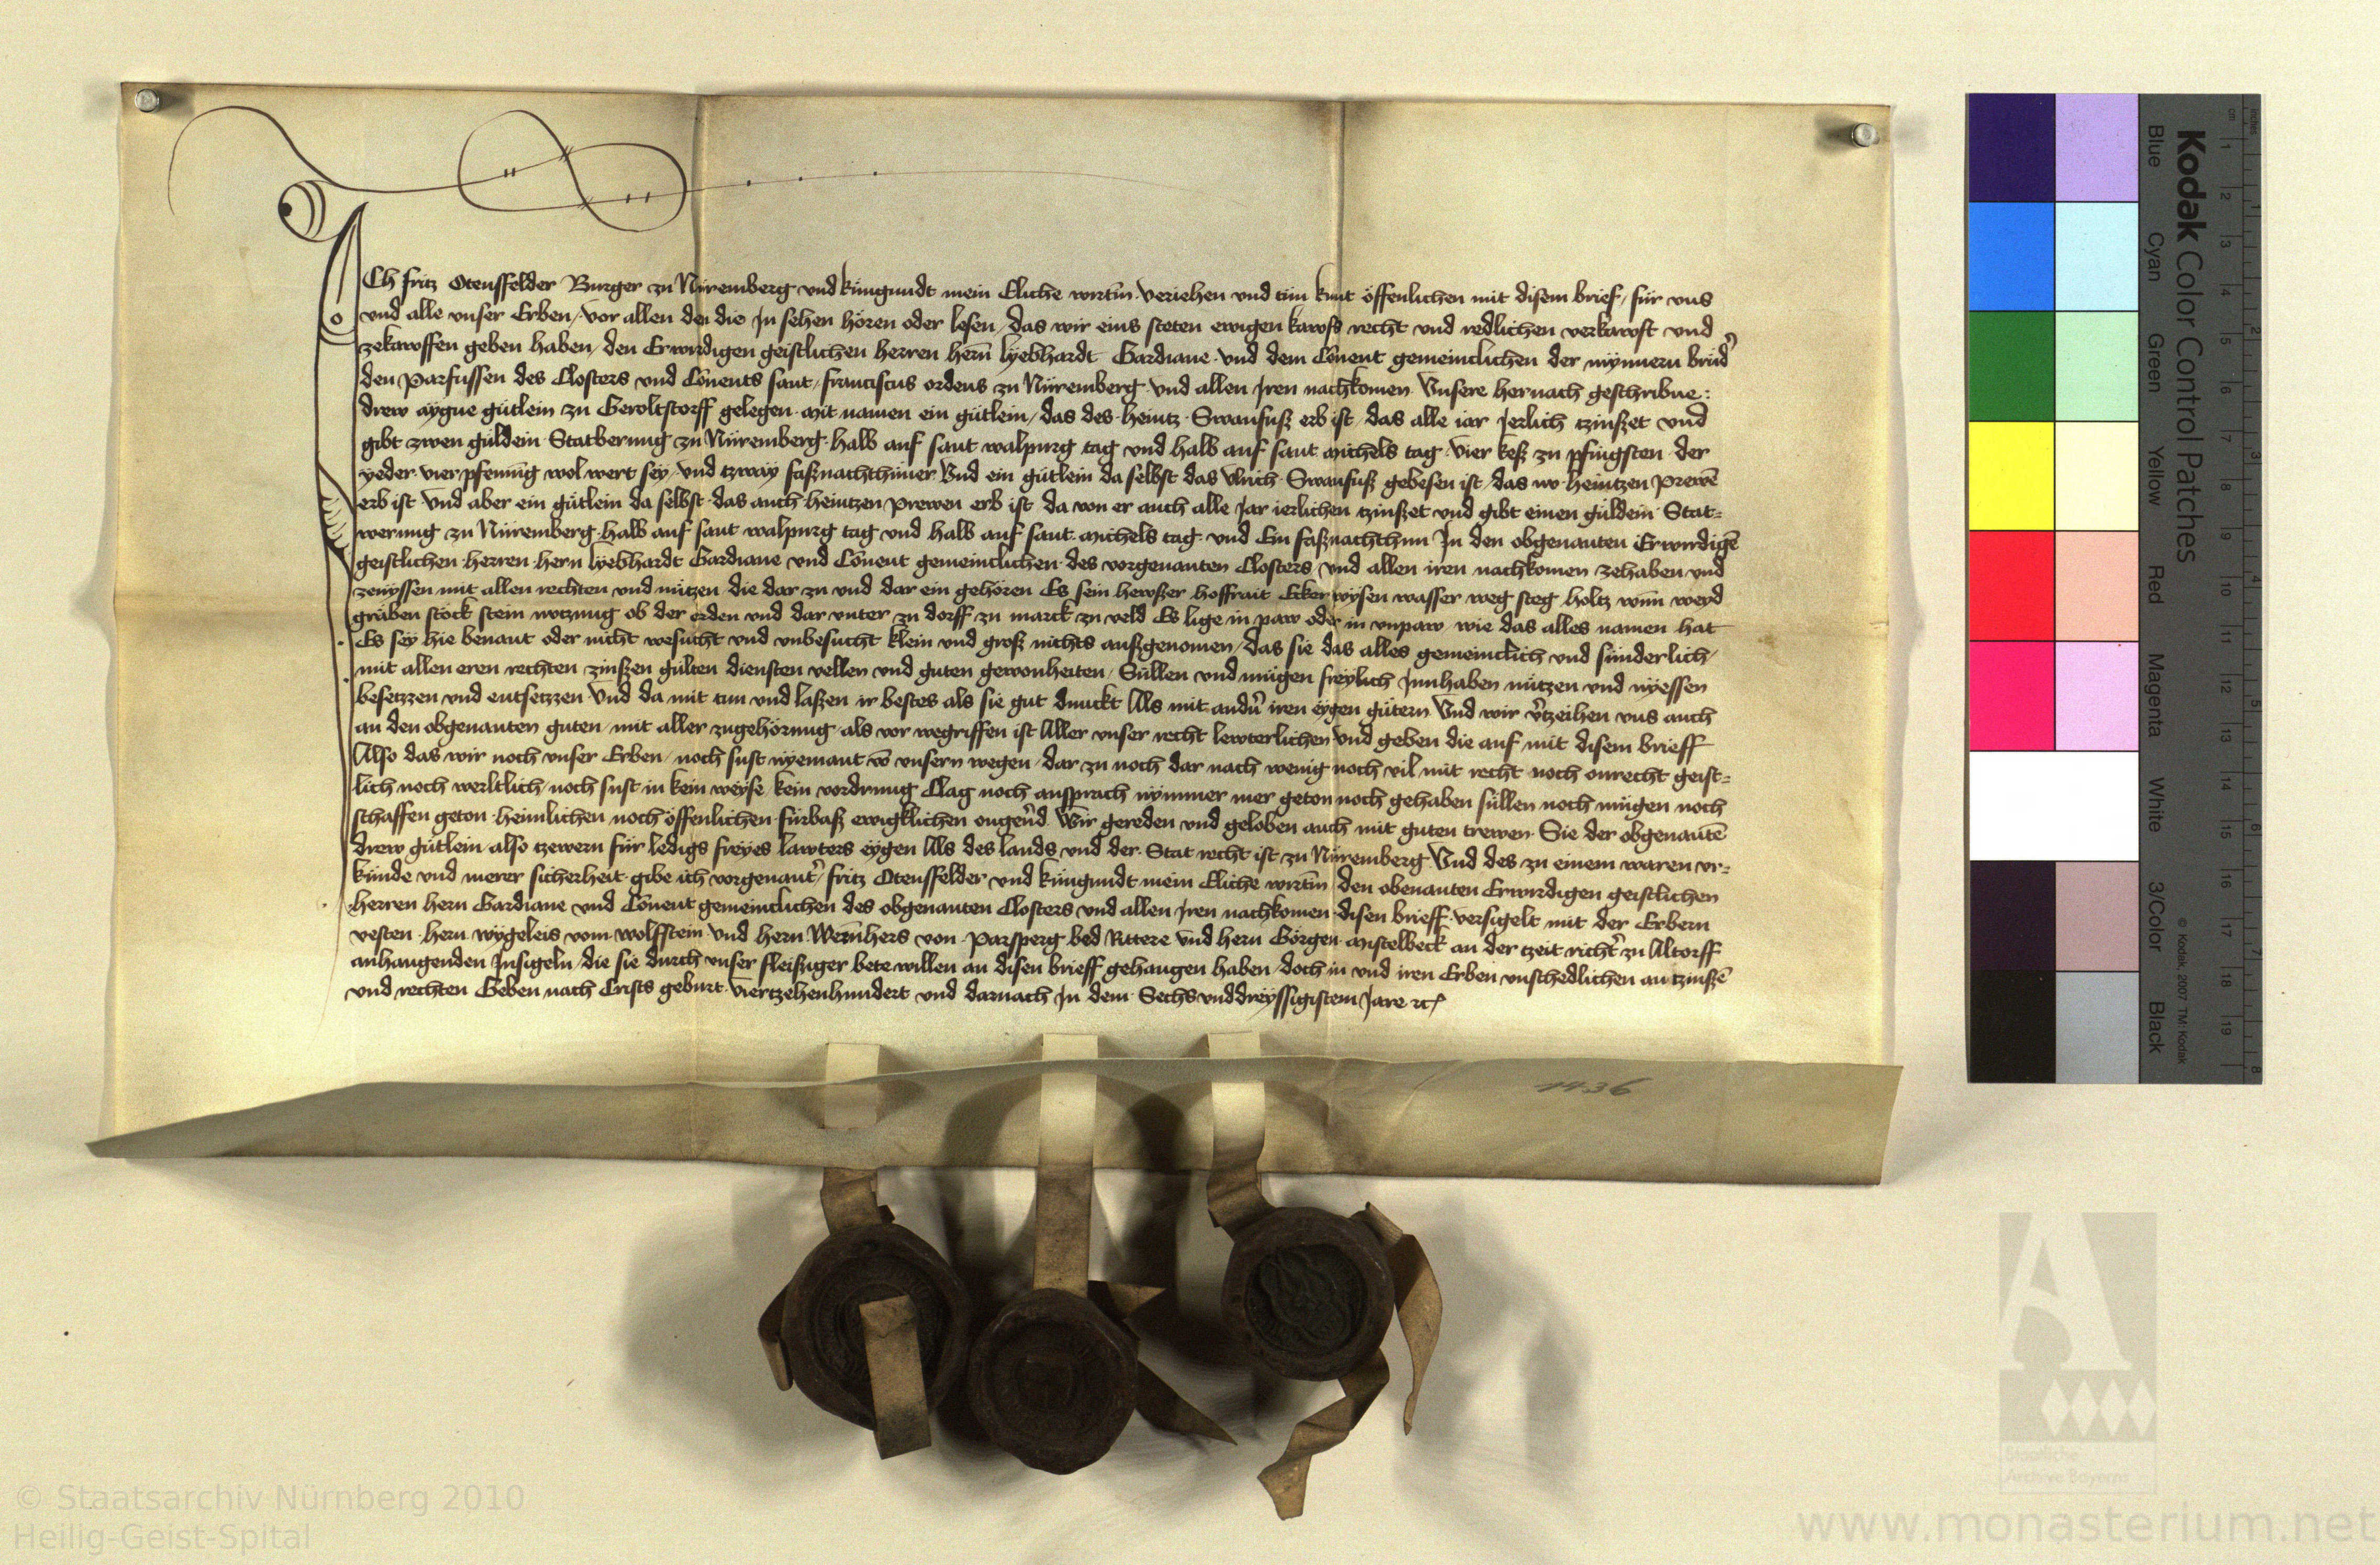 ICh fritz Otensfelder Burger zu Nüremberg vnd küngundt mein Eliche wirtin veriehen vnd tün kunt öffenlichen mit disem brief / für vns
vnd alle vnser Erben / vor allen den die jn sehen hören oder lesen / das wir eins steten ewigen kawfs recht vnd redlichen verkawft vnd
zekawffen geben haben / den Erwirdigen geistlichen herren hern lyebhardt Gardiane vnd dem Conent gemeinclichen der mynnern brud
den Parfussen des Closters vnd Conents sant franciscus ordens zu Nüremberg vnd allen jren nachkomen Vnsere hernach geschribne :
drew aygne gütlein zu Geroltstorff gelegen mit namen ein gütlein / das des heintz Swanfuß erb ist / das alle iar Jerlich tzinßet vnd
gibt zwen guldein Statberung zu Nüremberg halb auf sant walpurg tag vnd halb auf sant michels tag vier keß zu pfingsten der
yeder vier pfenning wol wert sey vnd tzway faßnachthüner Vnd ein gütlein da selbst das Vlrich Swanfuß gebesen ist / das no heintzen Prewē
erb ist Vnd aber ein gütlein da selbst das auch heintzen prewen erb ist da von er auch alle Jar ierlichen tzinßet vnd gibt einen guldein Stat=
werung zu Nüremberg halb auf sant walpurg tag vnd halb auf sant michels tag vnd Ein faßnachthun Jn den obgenanten Erwirdigē
geistlichen herren hern lyebhardt Gardiane vnd Conent gemeinclichen des vorgenanten Closters vnd allen iren nachkomen zehaben vnd
zenyssen mit allen rechten vnd nützen die dar zu vnd dar ein gehören Es sein hewßer hoffrait Ecker wysen wasser weg steg holtz wnn weyd
gräben stöck stein notzung ob der erden vnd dar vnter zu dorff zu marck zu veld Es lige in paw oder in vnpaw wie das alles namen hat
Es sey hie benant oder nicht wesücht vnd vnbesucht klein vnd groß nichts außgenomen / das sie das alles gemeinclich vnd sünderlich /
mit allen eren rechten zinßen gülten diensten vellen vnd guten gewonheiten / Süllen vnd mügen freylich Jnnhaben nützen vnd nyessen
besetzzen vnd entsetzzen Vnd da mit tun vnd laßen ir bestes als sie gut dunckt Als mit andn iren eygen gütern Vnd wir vtzeihen vns auch
an den obgenanten guten mit aller zugehörung als vor wegriffen ist Aller vnser recht lewterlichen vnd geben die auf mit disem brieff
Also das wir noch vnser Erben / noch sust nyemant vō vnsern wegen / dar zu noch dar nach wenig noch vil mit recht noch onrecht geist=
lich noch werltlich / noch sust in kein weyse kein vordrung Clag noch ansprach nymmer mer geton noch gehaben süllen noch mügen noch
schaffen geton heimlichen noch öffenlichen fürbaß ewigklichen ongend Wir gereden vnd geloben auch mit guten trewen Sie der obgenantē
drew gütlein also tzewern für ledigs freyes lawters eygen Als des lands vnd der Stat recht ist zu Nüremberg Vnd des zu einem waren vr=
künde vnd merer sicherheit gibe ich vorgenant fritz Otensfelder vnd küngundt mein Eliche wirtin den obenanten Erwirdigen geistlichen
herren hern Gardiane vnd Conent gemeinclichen des obgenanten Closters vnd allen jren nachkomen disen brieff versigelt mit der Erbern
vesten hern wygeleis vom wolfstein vnd hern Wernhers von Parsperg bed Rittere Vnd hern Görgen mistelbeck an der tzeit richt zu Altorff
anhangenden Jnsigeln / die sie durch vnser fleißiger bete willen an disen brieff gehangen haben / doch in vnd iren Erben vnschedlichen an tzinßē
vnd rechten Geben nach Crists geburt viertzehenhundert vnd darnach Jn dem Sechsvnddreyssigistem Jare ⁊c
1436
Kodak Color Control Patches
Blue Cyan Green Yellow Red Magenta White 3/Color Black
© Kodak, 2007 TM: Kodak
cm 1 2 3 4 5 6 7 8 9 10 11 12 13 14 15 16 17 18 19
inches 1 2 3 4 5 6 7 8
Staatliche
Archive Bayerns
© Staatsarchiv Nürnberg 2010
Heilig-Geist-Spital
www.monasterium.net